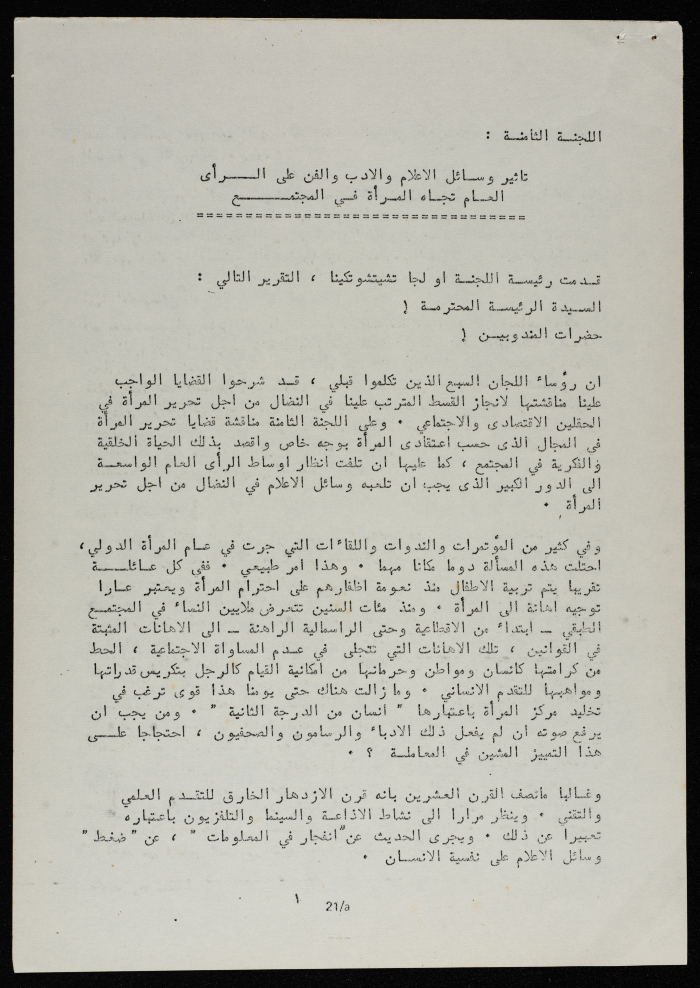 اللجنـة الثامنـة :
تاثير وسـائل الاعلام والادب والفن على الـــرأى
العـام تجـاه المـرأة فـي المجتمــــع
=================================
قـدمت رئيسـة اللجنـة او لجا تشيتشوتكينا ، التقرير التالي :
السـيدة الرئيسـة المحترمـة !
حضرات المندوبيـن !
ان رؤساء اللجان السبع الذين تكلموا قبلي ، قـد شرحوا القضايا الواجب
علينا مناقشتها لانجاز القسط المترتب علينا في النضال من اجل تحرير المرأة في
الحقلين الاقتصادى والاجتماعي . وعلى اللجنة الثامنة مناقشة قضايا تحرير المرأة
في المجال الذى حسب اعتقادى المرأة بوجه خاص واقصد بذلك الحياة الخلقية
والفكرية في المجتمع ، كما عليها ان تلفت انظار اوساط الرأى العام الواسعـة
الى الدور الكبير الذى يجب ان تلعبه وسائل الاعلام في النضال من اجل تحرير
المرأة .
وفي كثير من المؤتمرات والندوات واللقاءات التي جرت في عـام المرأة الدولي،
احتلت هذه المسألة دوما مكانا مهما . وهذا امر طبيعي . ففي كل عـائلـــة
تقريبا يتم تربية الاطفال منذ نعومة اظفارهم على احترام المرأة ويعتبر عـارا
توجيه اهانة الى المرأة . ومنذ مئات السنين تتعرض ملايين النساء في المجتمـع
الطبقي ـ ابتداء من الاقطاعية وحتى الراسمالية الراهنة ـ الى الاهانات المثبتة
في القوانين ، تلك الاهانات التي تتجلى في عـدم المساواة الاجتماعية ، الحط
من كرامتها كانسان ومواطن وحرمانها من امكانية القيام كالرجل بتكريس قدراتها
ومواهبها للتقدم الانساني . وما زالت هناك حتى يومنا هذا قوى ترغب في
تخليد مركز المرأة باعتبارها " انسان من الدرجة الثانية " . ومن يجب ان
يرفع صوته ان لم يفعل ذلك الادباء والرسامون والصحفيون ، احتجاجا علـى
هذا التمييز المشين في المعاملـة ؟ .
وغـالبا مانصف القرن العشرين بانه قرن الازدهار الخارق للتقـدم العلمي
والتقني . وينظر مرارا الى نشاط الاذاعـة والسينما والتلفزيون باعتباره
تعبيرا عن ذلك . ويجرى الحديث عن"انفجار في المعلومات " ، عن " ضغط "
وسائل الاعلام على نفسية الانسـان .
١
21/a